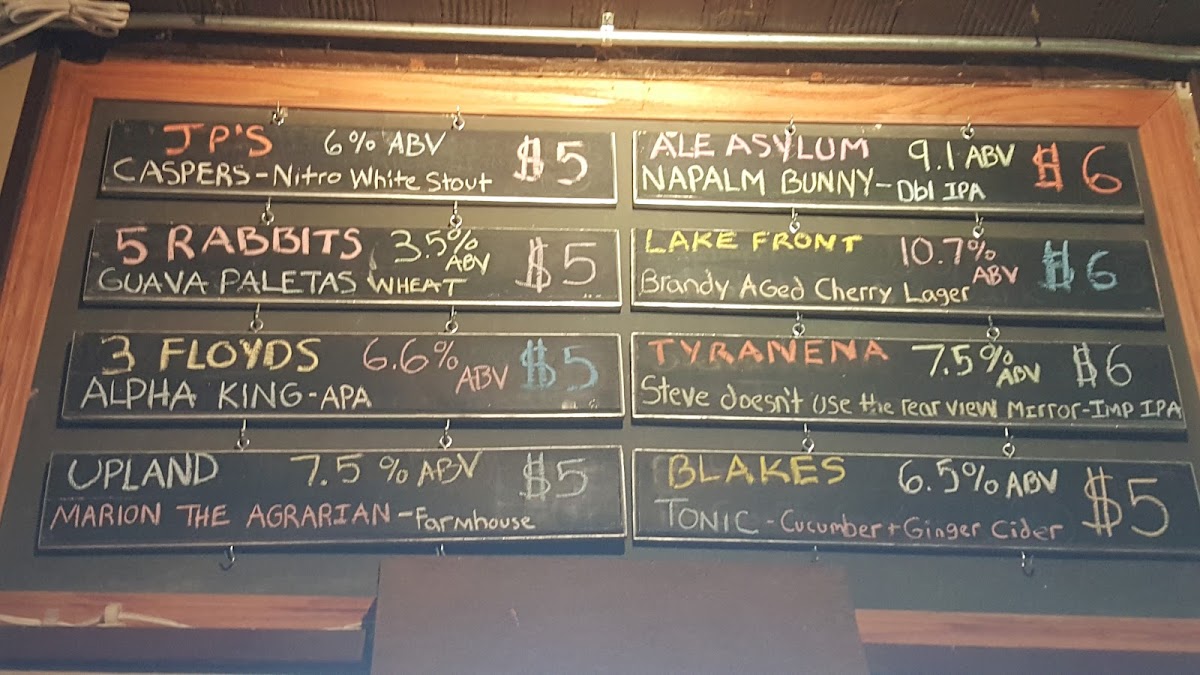 JP'S 6% ABV $5
CASPERS-Nitro White Stout
5 RABBITS 3.5% ABV $5
GUAVA PALETAS WHEAT
3 FLOYDS 6.6% ABV $5
ALPHA KING-APA
UPLAND 7.5% ABV $5
MARION THE AGRARIAN-Farmhouse
ALE ASYLUM 9.1 ABV $6
NAPALM BUNNY-Dbl IPA
LAKE FRONT 10.7% ABV $6
Brandy Aged Cherry Lager
TYRANENA 7.5% ABV $6
Steve doesn't use the rear view Mirror-Imp IPA
BLAKES 6.5% ABV $5
TONIC-Cucumber+Ginger Cider